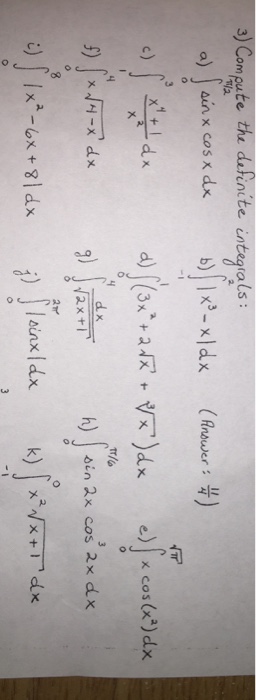 3) Compute the definite integrals:
a) ∫₀^{π/2} sin x cos x dx b) ∫₋₁² |x³ − x| dx (Answer: 11/4)
c) ∫₁³ (x⁴ + 1)/x² dx d) ∫₀¹ (3x² + 2√x + ∛x) dx e) ∫₀^{√π} x cos(x²) dx
f) ∫₀⁴ x √(4 − x) dx g) ∫₀⁴ dx/√(2x + 1) h) ∫₀^{π/6} sin 2x cos³ 2x dx
i) ∫₀⁸ |x² − 6x + 8| dx j) ∫₀^{2π} |sin x| dx k) ∫₋₁⁰ x² √(x + 1) dx
3